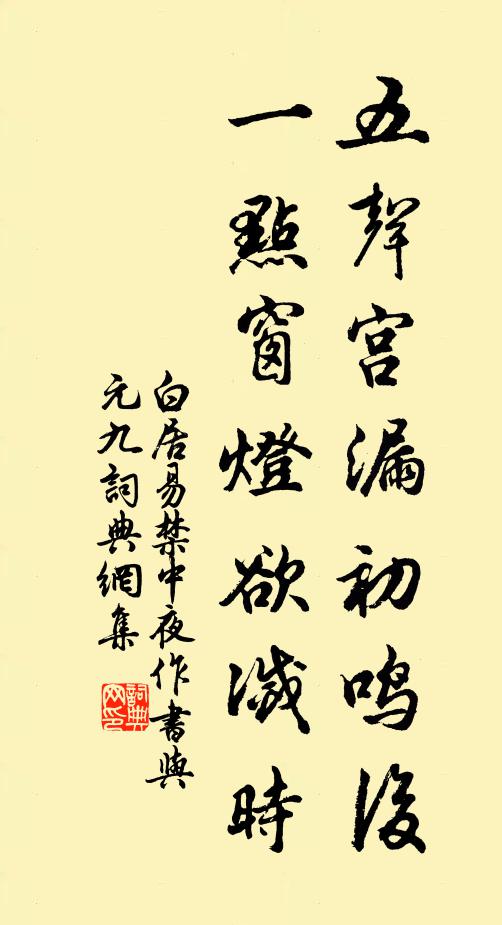 五聲宮漏初鳴後
一點窗燈欲滅時
白居易禁中夜作書與
元九詞典網集
詞典
网印